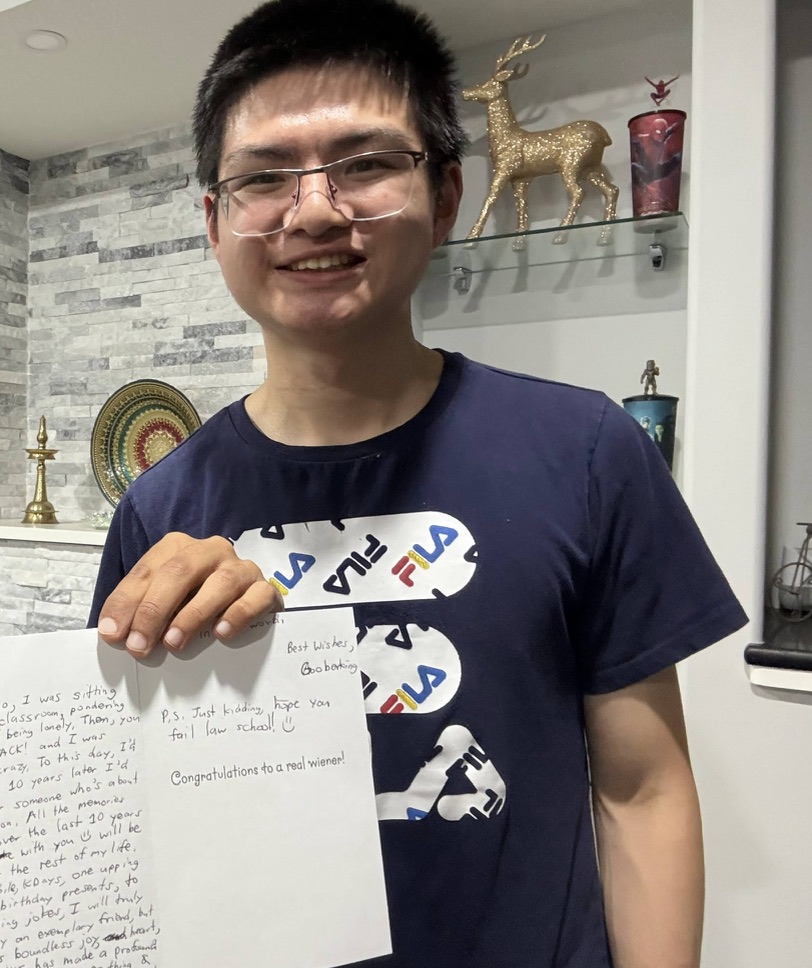 FILA
FILA
FILA
FILA
o, I was sitting
classroom, pondering
being lonely. Then, you
ACK! and I was
crazy. To this day, I'd
10 years later I'd
someone who's about
on. All the memories
over the last 10 years
with you will be
the rest of my life.
KDays, one upping
birthday presents, to
ing jokes, I will truly
an exemplary friend, but
s boundless joy and heart,
has made a profound
thing &
Best Wishes,
Gooberking
P.S. Just kidding, hope you
fail law school!
Congratulations to a real wiener!